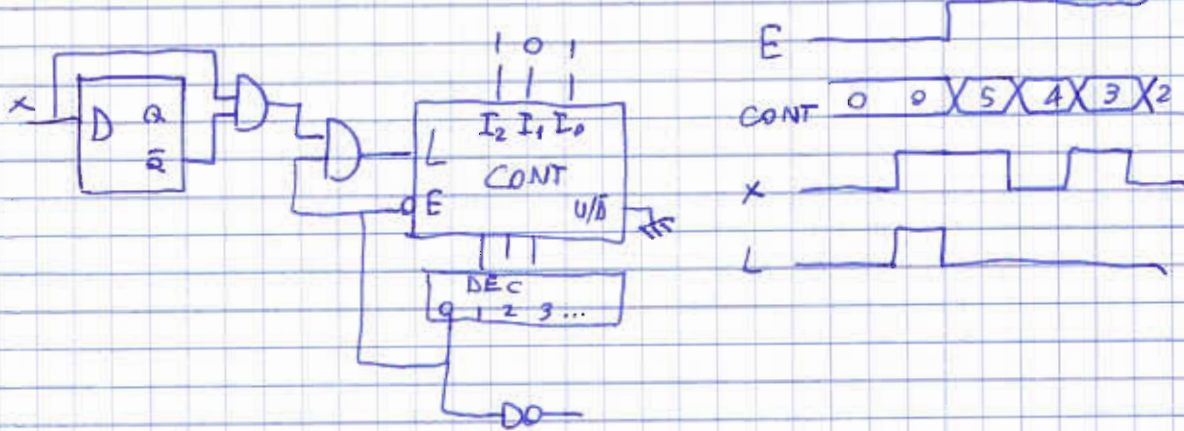 1 0 1
E
x
D Q
Q̅
I₂ I₁ I₀
L
CONT
E
U/D̅
DEC
0 1 2 3 ...
CONT 0 0 5 4 3 2
x
L